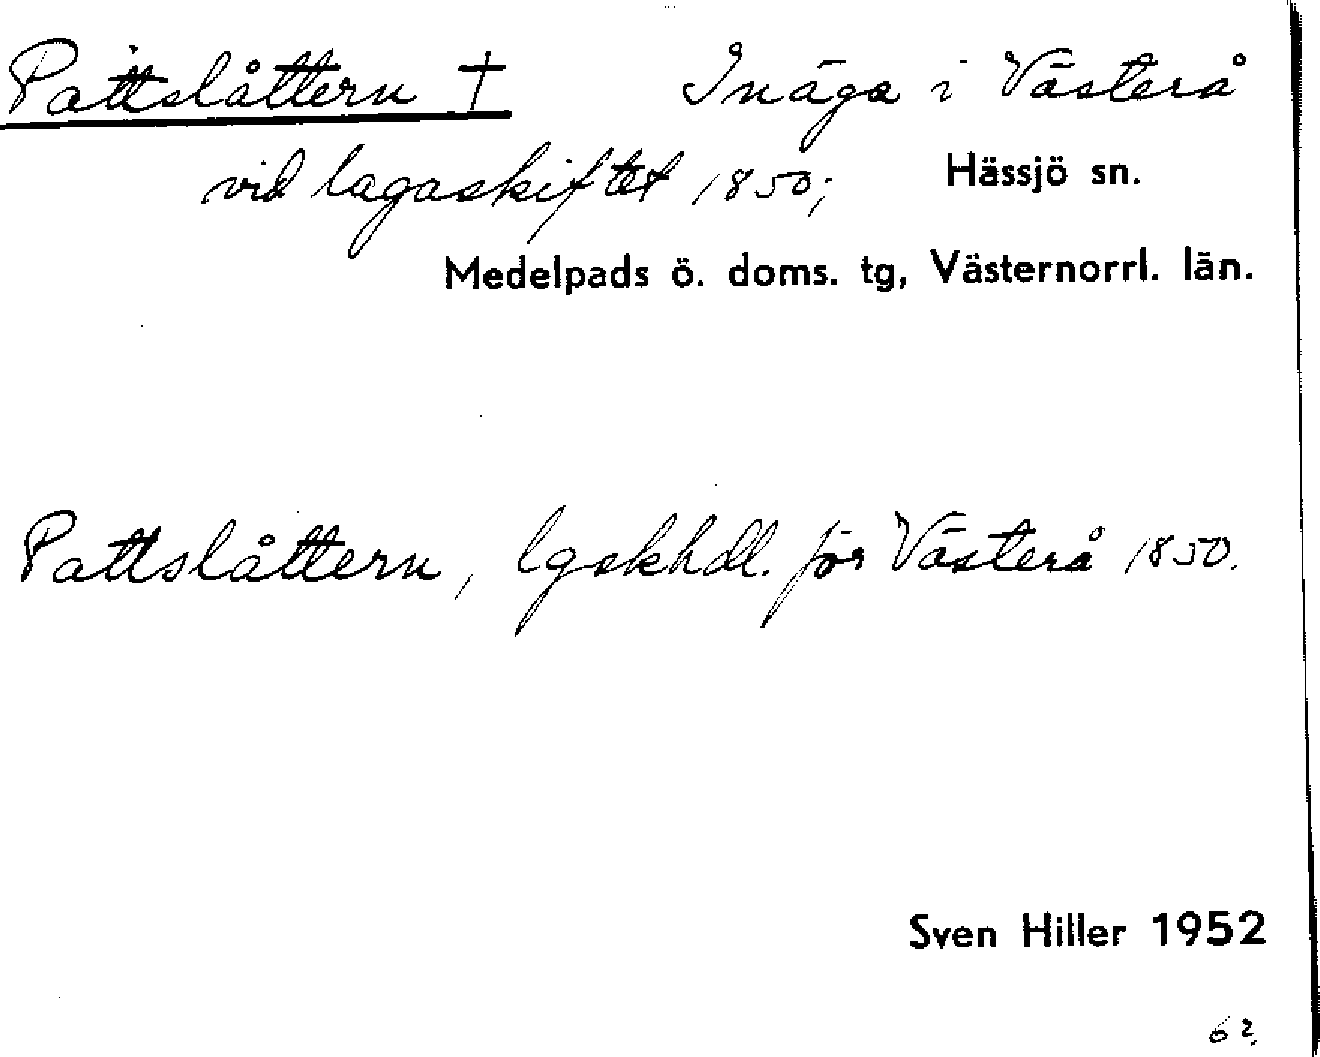 Pattslåttern † Inäga i Västerå
vid lagaskiftet 1850; Hässjö sn.
Medelpads ö. doms. tg, Västernorrl. län.
Pattslåttern, lgskhdl. för Västerå 1850.
Sven Hiller 1952
62.